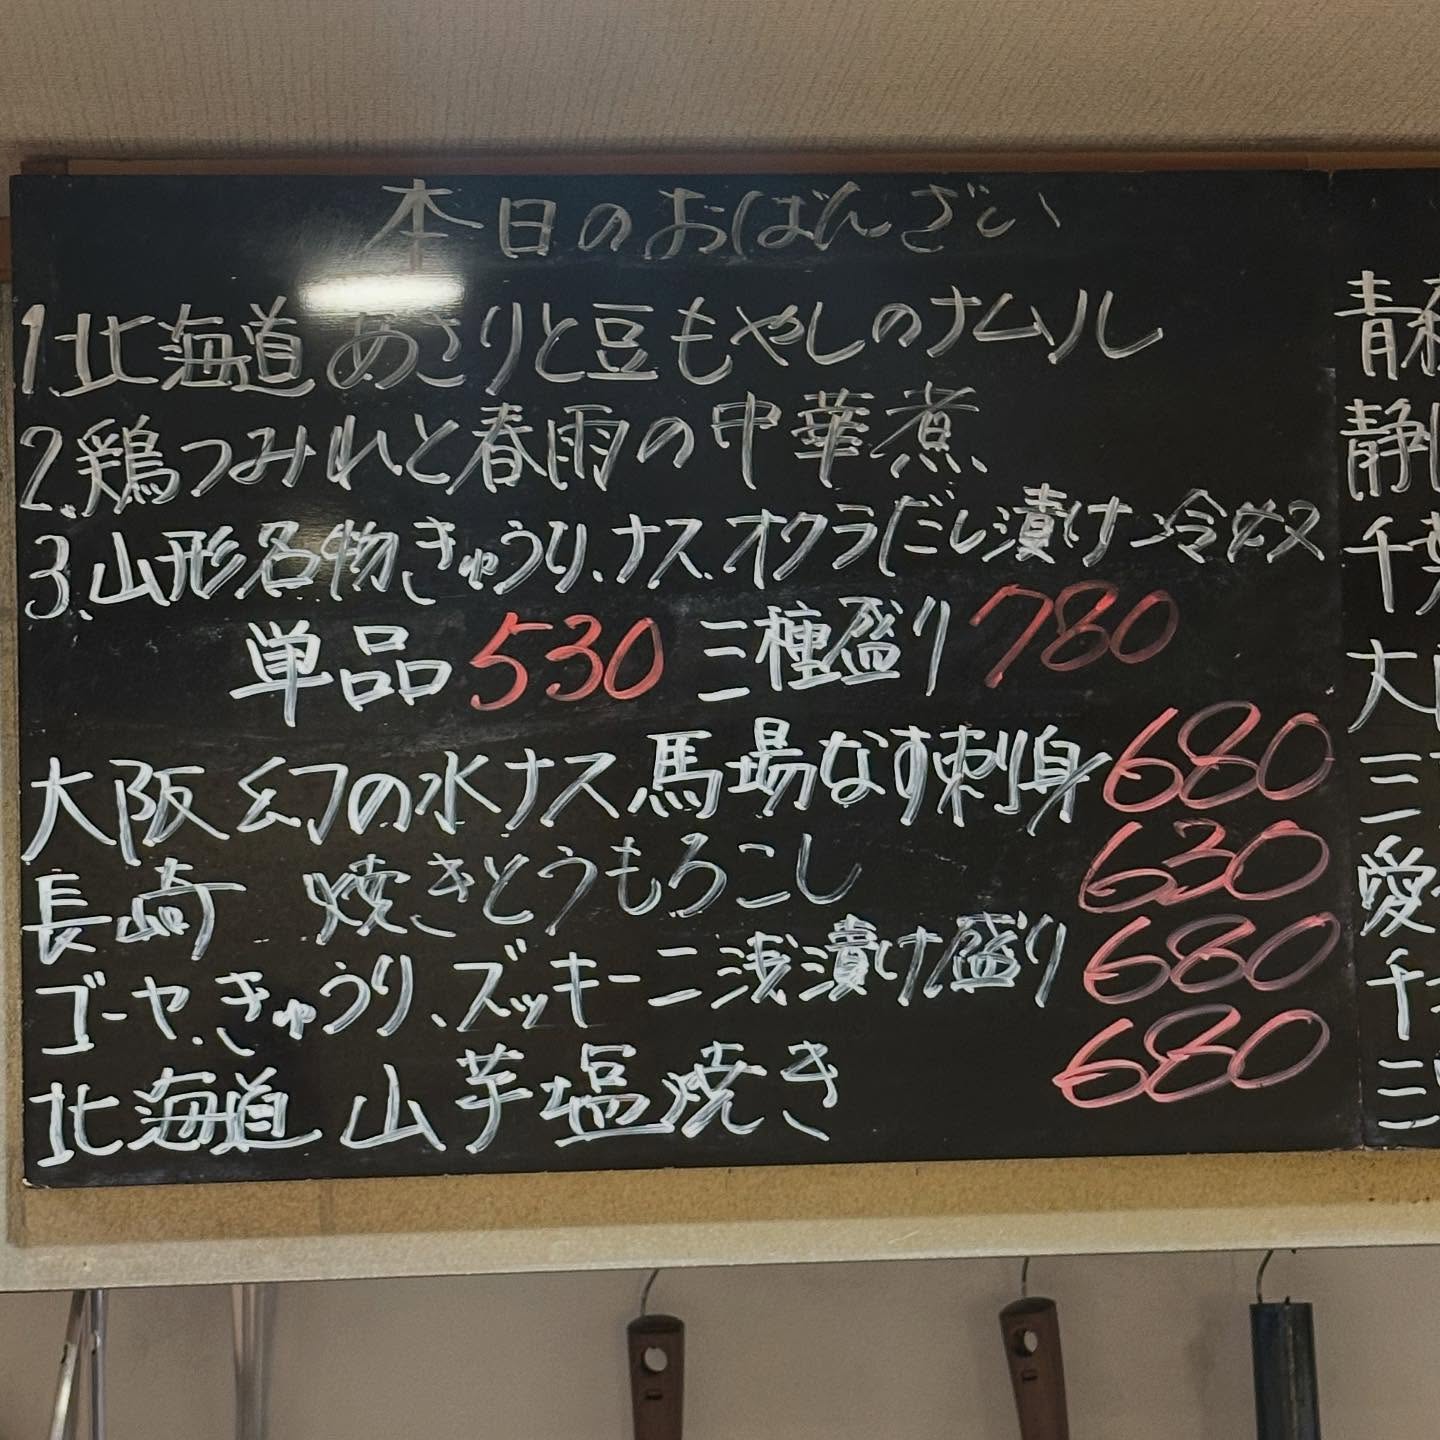 本日のおばんざい
1.北海道 あさりと豆もやしのナムル
2.鶏つみれと春雨の中華煮
3.山形名物、きゅうり、ナス、オクラだし漬け冷奴
単品 530 三種盛り 780
大阪 幻の水ナス 馬場なす刺身 680
長崎 焼きとうもろこし 630
ゴーヤ、きゅうり、ズッキーニ浅漬け盛り 680
北海道 山芋塩焼き 680
青森
静
千葉
大
三
愛
千
三